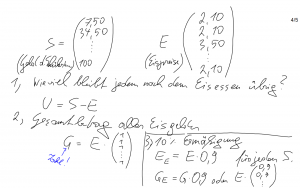 S = (7,50 34,50 ⋮ 100)
(Geld d. Schüler)
E (2,10 2,10 3,50 ⋮ 2,10)
(Eispreise)
1, Wieviel bleibt jedem nach dem Eisessen übrig?
U = S-E
2, Gesamtbetrag aller Eisgelder
G = E · (1 1 ⋮ 1)
Zahl!
3, 10% Ermäßigung
E_E = E · 0,9 für jeden S.
G_E = G · 0,9 oder E · (0,9 0,9 ⋮)